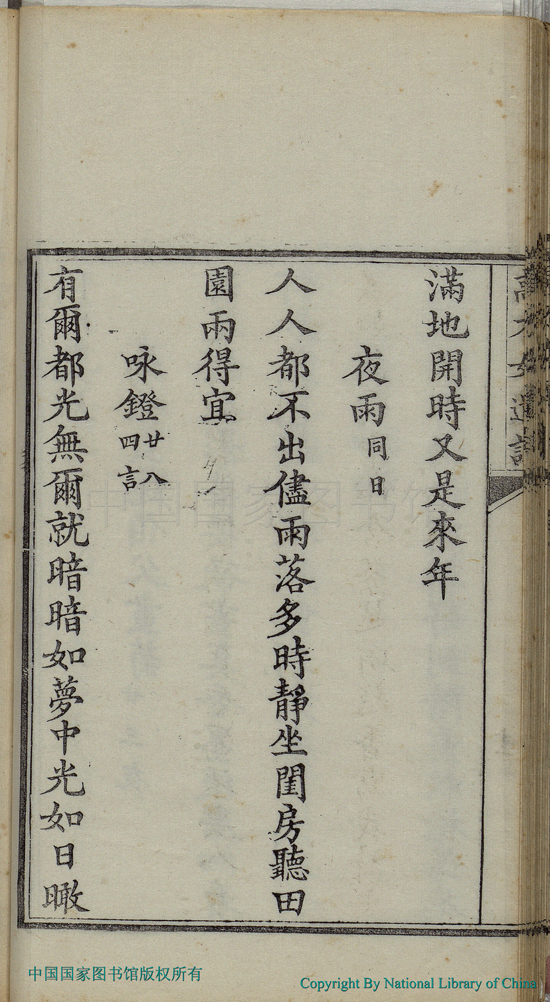 滿地開時又是來年
夜雨同日
人人都不出儘雨落多時靜坐閨房聽田
園雨得宜
咏鐙廿八四言
有爾都光無爾就暗暗如夢中光如日瞰
中国国家图书馆
中国国家图书馆版权所有
Copyright By National Library of China